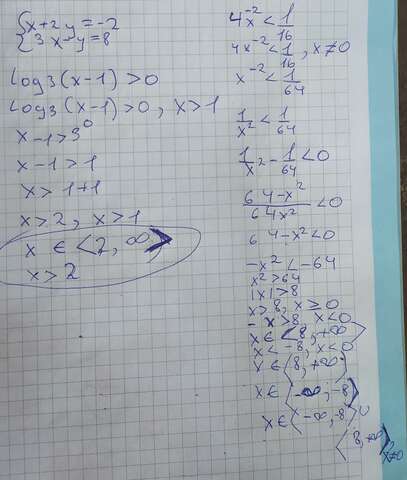 {x+2y=-2
{3x-y=8
log3(x-1)>0
log3(x-1)>0, x>1
x-1>3⁰
x-1>1
x>1+1
x>2, x>1
x ∈ <2, ∞>
x>2
4x⁻²<1/16
4x⁻²<1/16, x≠0
x⁻²<1/64
1/x²<1/64
1/x²-1/64<0
64-x²/64x²<0
64-x²<0
-x²<-64
x²>64
|x|>8
x>8, x≥0
-x>8, x<0
x∈<8, +∞>
x<-8, x<0
x∈<8, +∞>
x∈<-∞, -8>
x∈<-∞, -8>∪
<8, +∞>
x≠0